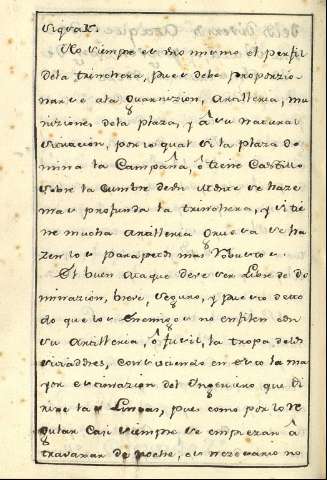 No siempre es uno mismo el perfil
dela trinchera, pues debe proporzio-
narse ala Guarnizion, Artilleria, mu
niziones dela plaza, y â su natural
situacion, por lo qual si la plaza do
mina la Campaña, ô tiene Castillo
sobre la Cumbre de un Monte se haze
mas profunda la trinchera, y si tie
ne mucha Artilleria Gruesa se ha
zen los parapetos mas robustos.
El buen Ataque deve ser libre de do
minazion, breve, seguro, y puesto de mo
do que los Enemigos no enfilen con
su Artilleria, ô fusil, la tropa delos
sitiadores, consistiendo en esto la ma
yor estimazion del Ingeniero que di
rige las Lineas, pues como por lo re
gular Casi siempre se empiezan â
travajar de Noche, es nezesario no